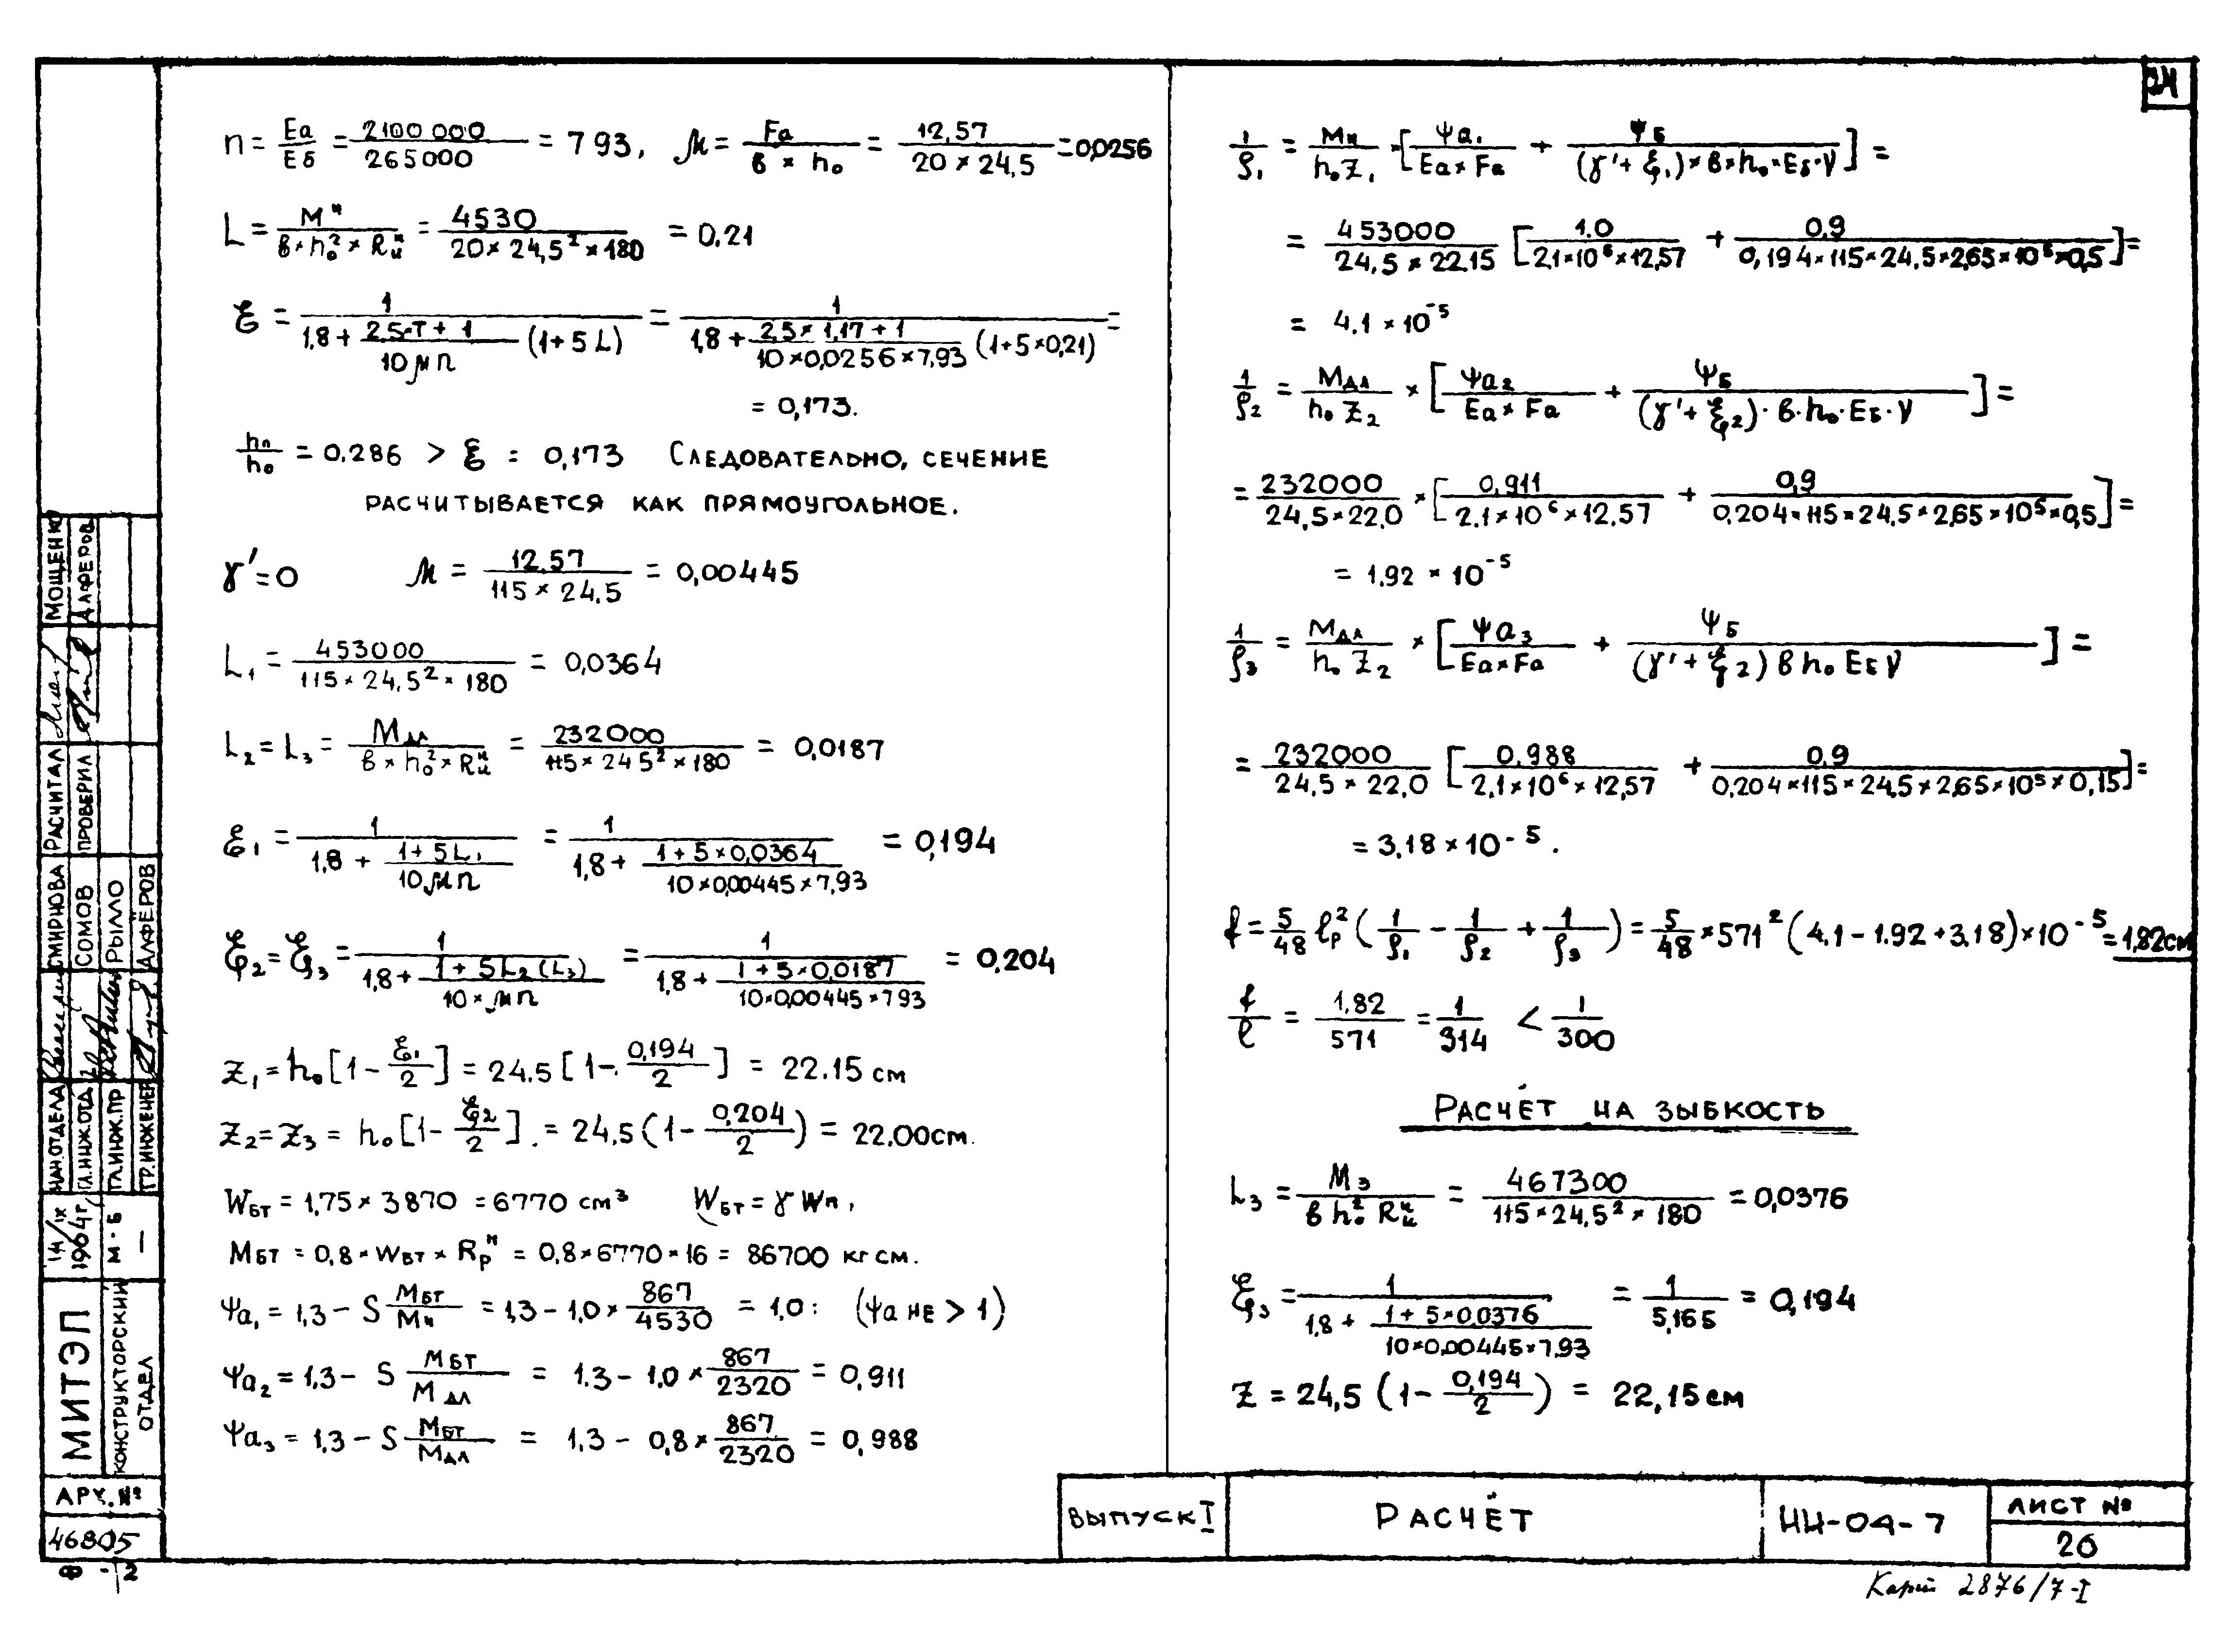 24
n = Eа/Eб = 2100 000/265000 = 7 93, μ = Fа/(в × h₀) = 12,57/(20 × 24,5) = 0,0256
L = Mᴴ/(в × h₀² × Rᴴи) = 4530/(20 × 24,5² × 180) = 0,21
ξ = 1/(1,8 + (2,5·T + 1)/(10 μ n) (1+5 L)) = 1/(1,8 + (2,5 × 1,17 + 1)/(10 × 0,0256 × 7,93) (1+5×0,21)) =
= 0,173.
hп/h₀ = 0.286 > ξ = 0,173 Следовательно, сечение
расчитывается как прямоугольное.
γ′ = 0 μ = 12,57/(115 × 24,5) = 0,00445
L₁ = 453000/(115 × 24,5² × 180) = 0,0364
L₂ = L₃ = Mдл/(в × h₀² × Rᴴи) = 232000/(115 × 24 5² × 180) = 0,0187
ξ₁ = 1/(1,8 + (1+5L₁)/(10 μ n)) = 1/(1,8 + (1 + 5 × 0,0364)/(10 × 0,00445 × 7,93)) = 0,194
ξ₂ = ξ₃ = 1/(1,8 + (1 + 5L₂(L₃))/(10 × μ n)) = 1/(1,8 + (1 + 5 × 0,0187)/(10 × 0,00445 × 7 93)) = 0,204
Z₁ = h₀[1 - ξ₁/2] = 24.5 [1 - 0,194/2] = 22.15 см
Z₂ = Z₃ = h₀[1 - ξ₂/2] = 24,5 (1 - 0,204/2) = 22.00см.
Wбт = 1,75 × 3870 = 6770 см³ Wбт = γ Wп,
Mбт = 0,8 × Wбт × Rрᴴ = 0,8 × 6770 × 16 = 86700 кг см.
Ψа₁ = 1,3 - S Mбт/Mн = 1,3 - 1,0 × 867/4530 = 1,0: (Ψа не > 1)
Ψа₂ = 1,3 - S Mбт/Mдл = 1.3 - 1,0 × 867/2320 = 0,911
Ψа₃ = 1,3 - S Mбт/Mдл = 1.3 - 0,8 × 867/2320 = 0,988
1/ρ₁ = Mн/(h₀Z₁) · [Ψа₁/(Eа × Fа) + Ψб/((γ′ + ξ₁) × в × h₀ × Eб · ν)] =
= 453000/(24,5 × 22.15) [1.0/(2,1 × 10⁶ × 12,57) + 0,9/(0,194 × 115 × 24,5 × 2,65 × 10⁵ × 0,5)] =
= 4.1 × 10⁻⁵
1/ρ₂ = Mдл/(h₀ Z₂) × [Ψа₂/(Eа × Fа) + Ψб/((γ′ + ξ₂) · в · h₀ · Eб · ν)] =
= 232000/(24,5 × 22,0) × [0,911/(2,1 × 10⁶ × 12,57) + 0,9/(0,204 × 115 × 24,5 × 2,65 × 10⁵ × 0,5)] =
= 1.92 × 10⁻⁵
1/ρ₃ = Mдл/(h₀ Z₂) × [Ψа₃/(Eа × Fа) + Ψб/((γ′ + ξ₂) в h₀ Eб ν)] =
= 232000/(24,5 × 22,0) [0,988/(2,1 × 10⁶ × 12,57) + 0,9/(0,204 × 115 × 24,5 × 2,65 × 10⁵ × 0,15)] =
= 3,18 × 10⁻⁵.
f = 5/48 ℓр² (1/ρ₁ - 1/ρ₂ + 1/ρ₃) = 5/48 × 571² (4.1 - 1.92 + 3.18) × 10⁻⁵ = 1,82см
f/ℓ = 1,82/571 = 1/314 < 1/300
Расчёт на зыбкость
L₃ = Mз/(в h₀² Rᴴи) = 467300/(115 × 24,5² × 180) = 0,0376
ξ₃ = 1/(1,8 + (1 + 5 × 0,0376)/(10 × 0,00445 × 7,93)) = 1/5,165 = 0,194
Z = 24,5 (1 - 0,194/2) = 22,15 см
Мощенко
Алферов
Расчитал
Проверил
Смирнова
Сомов
Рылло
Алфёров
Нач.отдела
Гл.инж.отд.
Гл.инж.пр
Гр.инженер
14/IX 1964г.
М-Б
—
МИТЭП
Конструкторский отдел
Арх. №
46805
Ф - 12
Выпуск I
Расчёт
ИИ-04-7
Лист №
20
2876/7-I